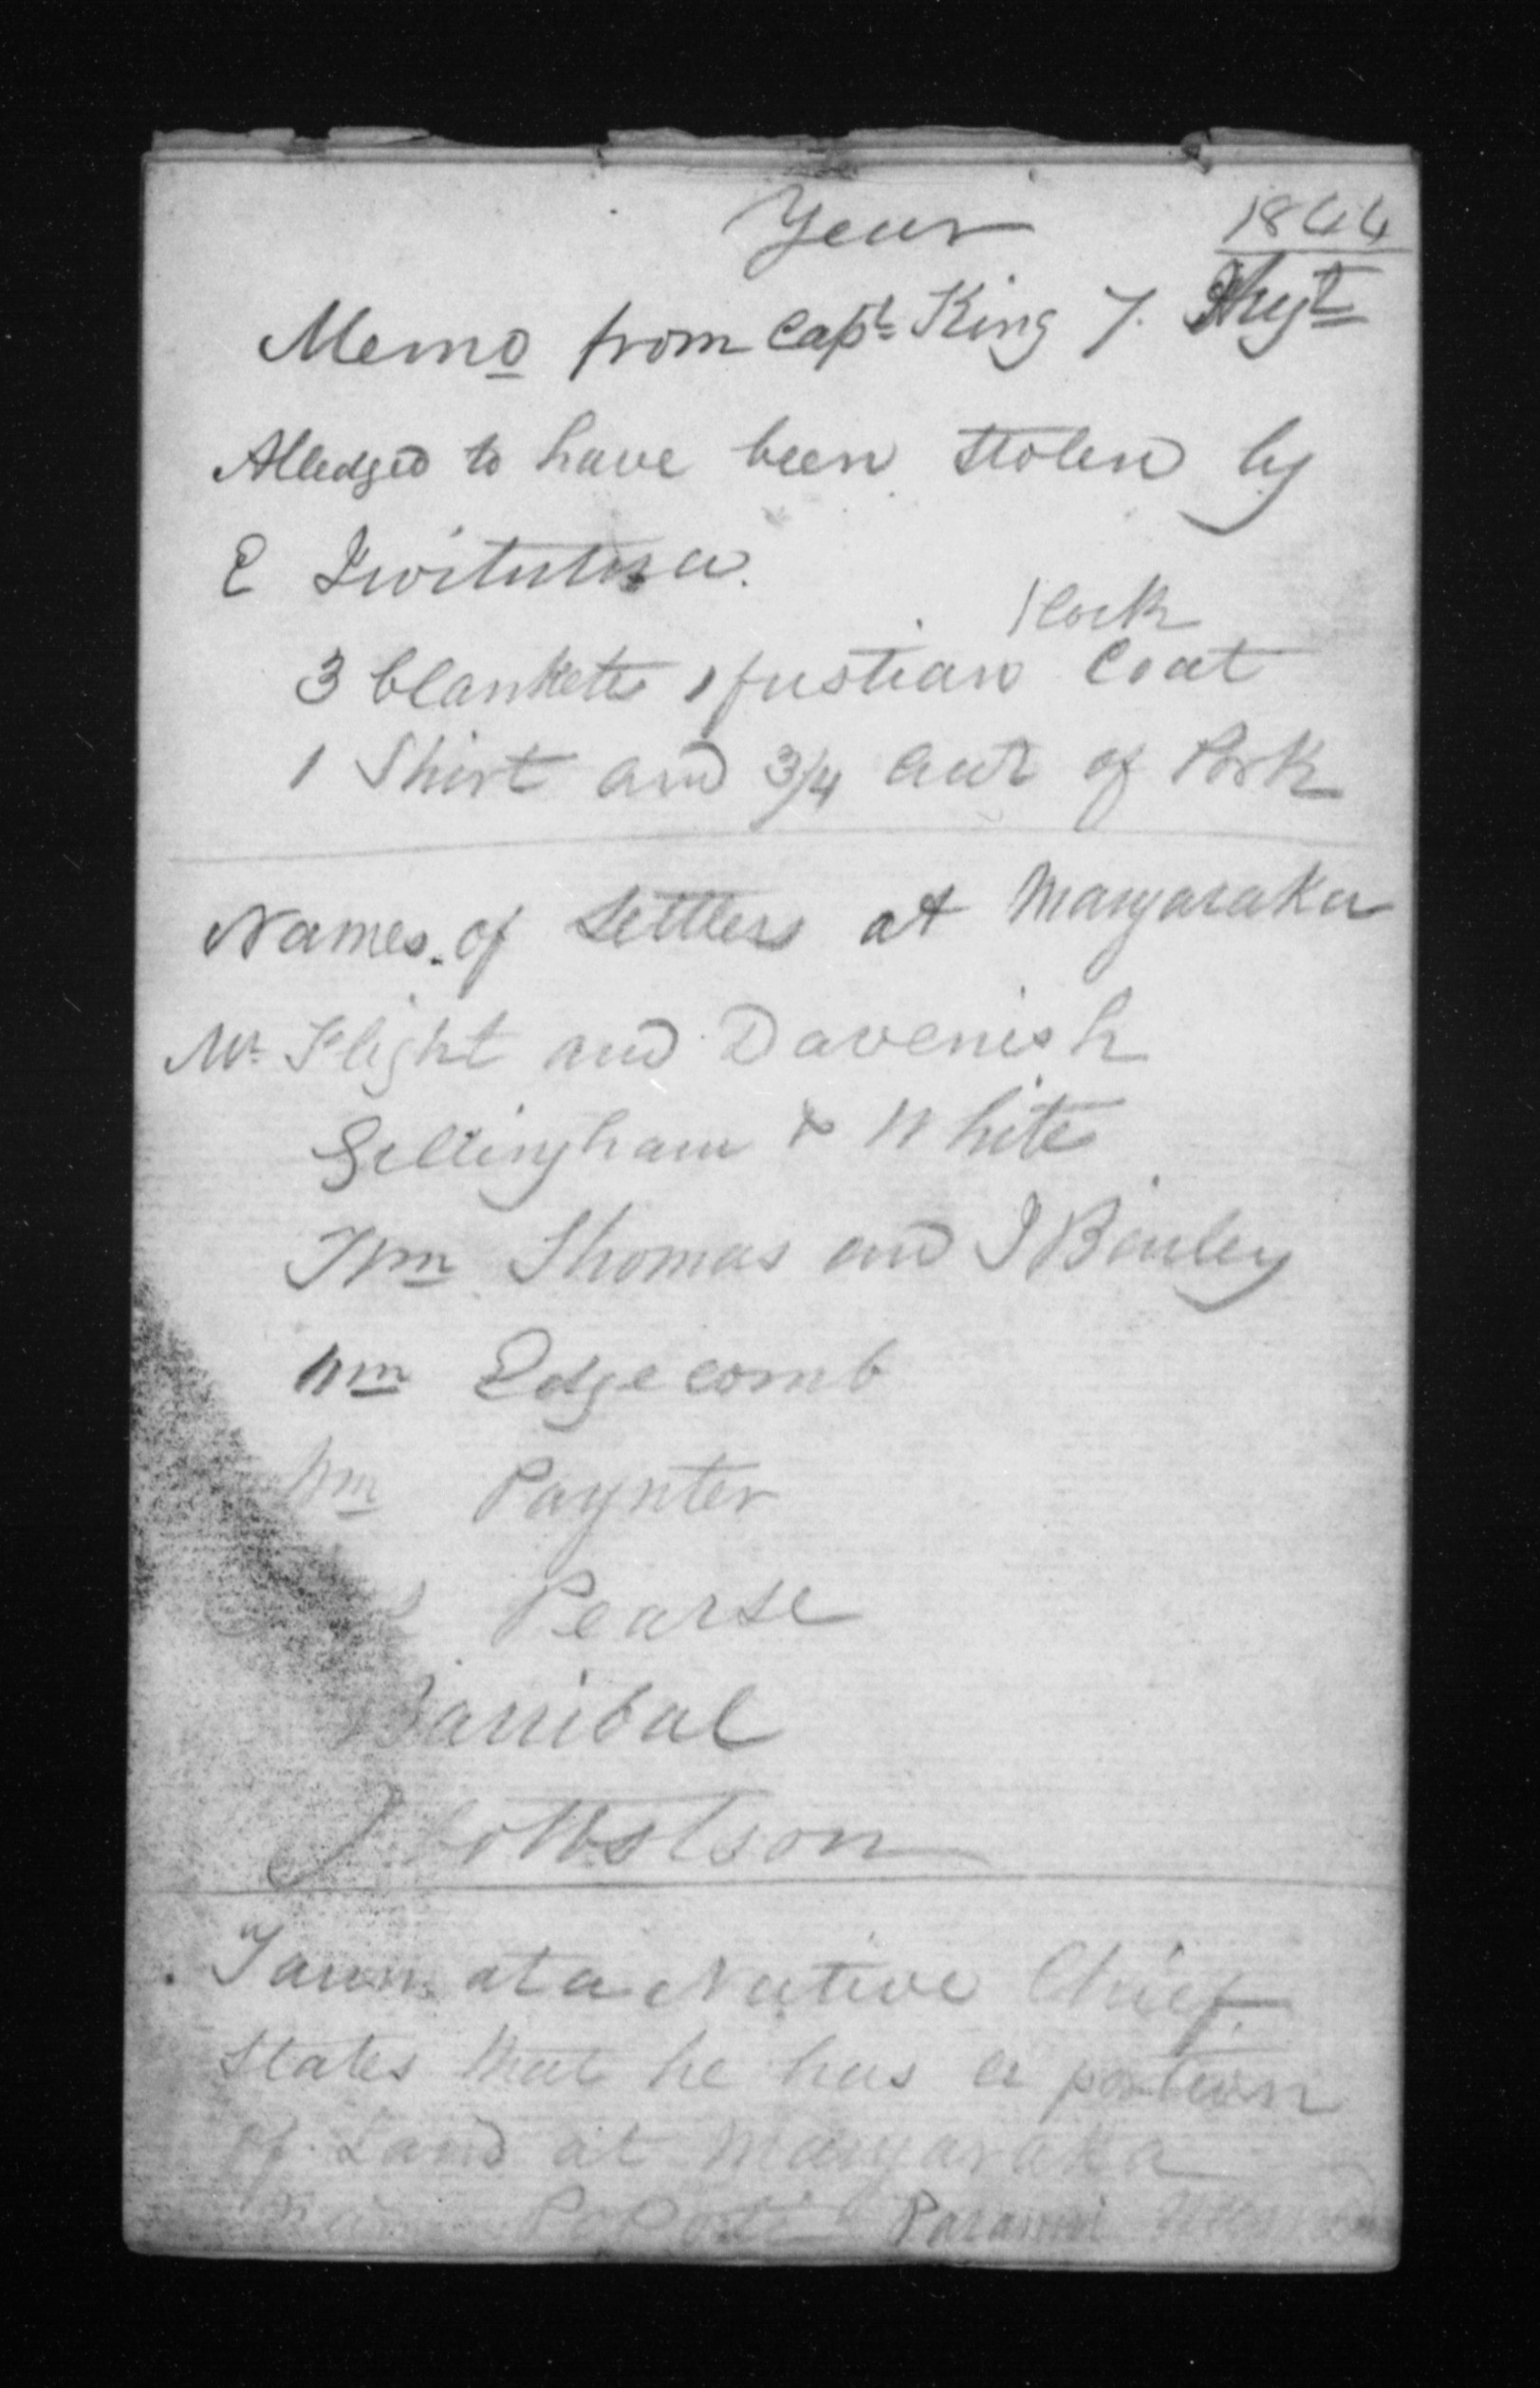 Year 1844
Memo from Capt King
Alledged to have been stolen by
E
1 lock
3 blankets 1 fustian Coat
1 Shirt and 3/4 of Pork
Names of Settlers at Mangaraka
Mr Flight and Davenish
Gillingham & White
Wm Thomas and J Bailey
Wm Edgecomb
Wm Paynter
Pearse
Barribal
J
Native Chief
States that he has a portion
of Land at Mangaraka